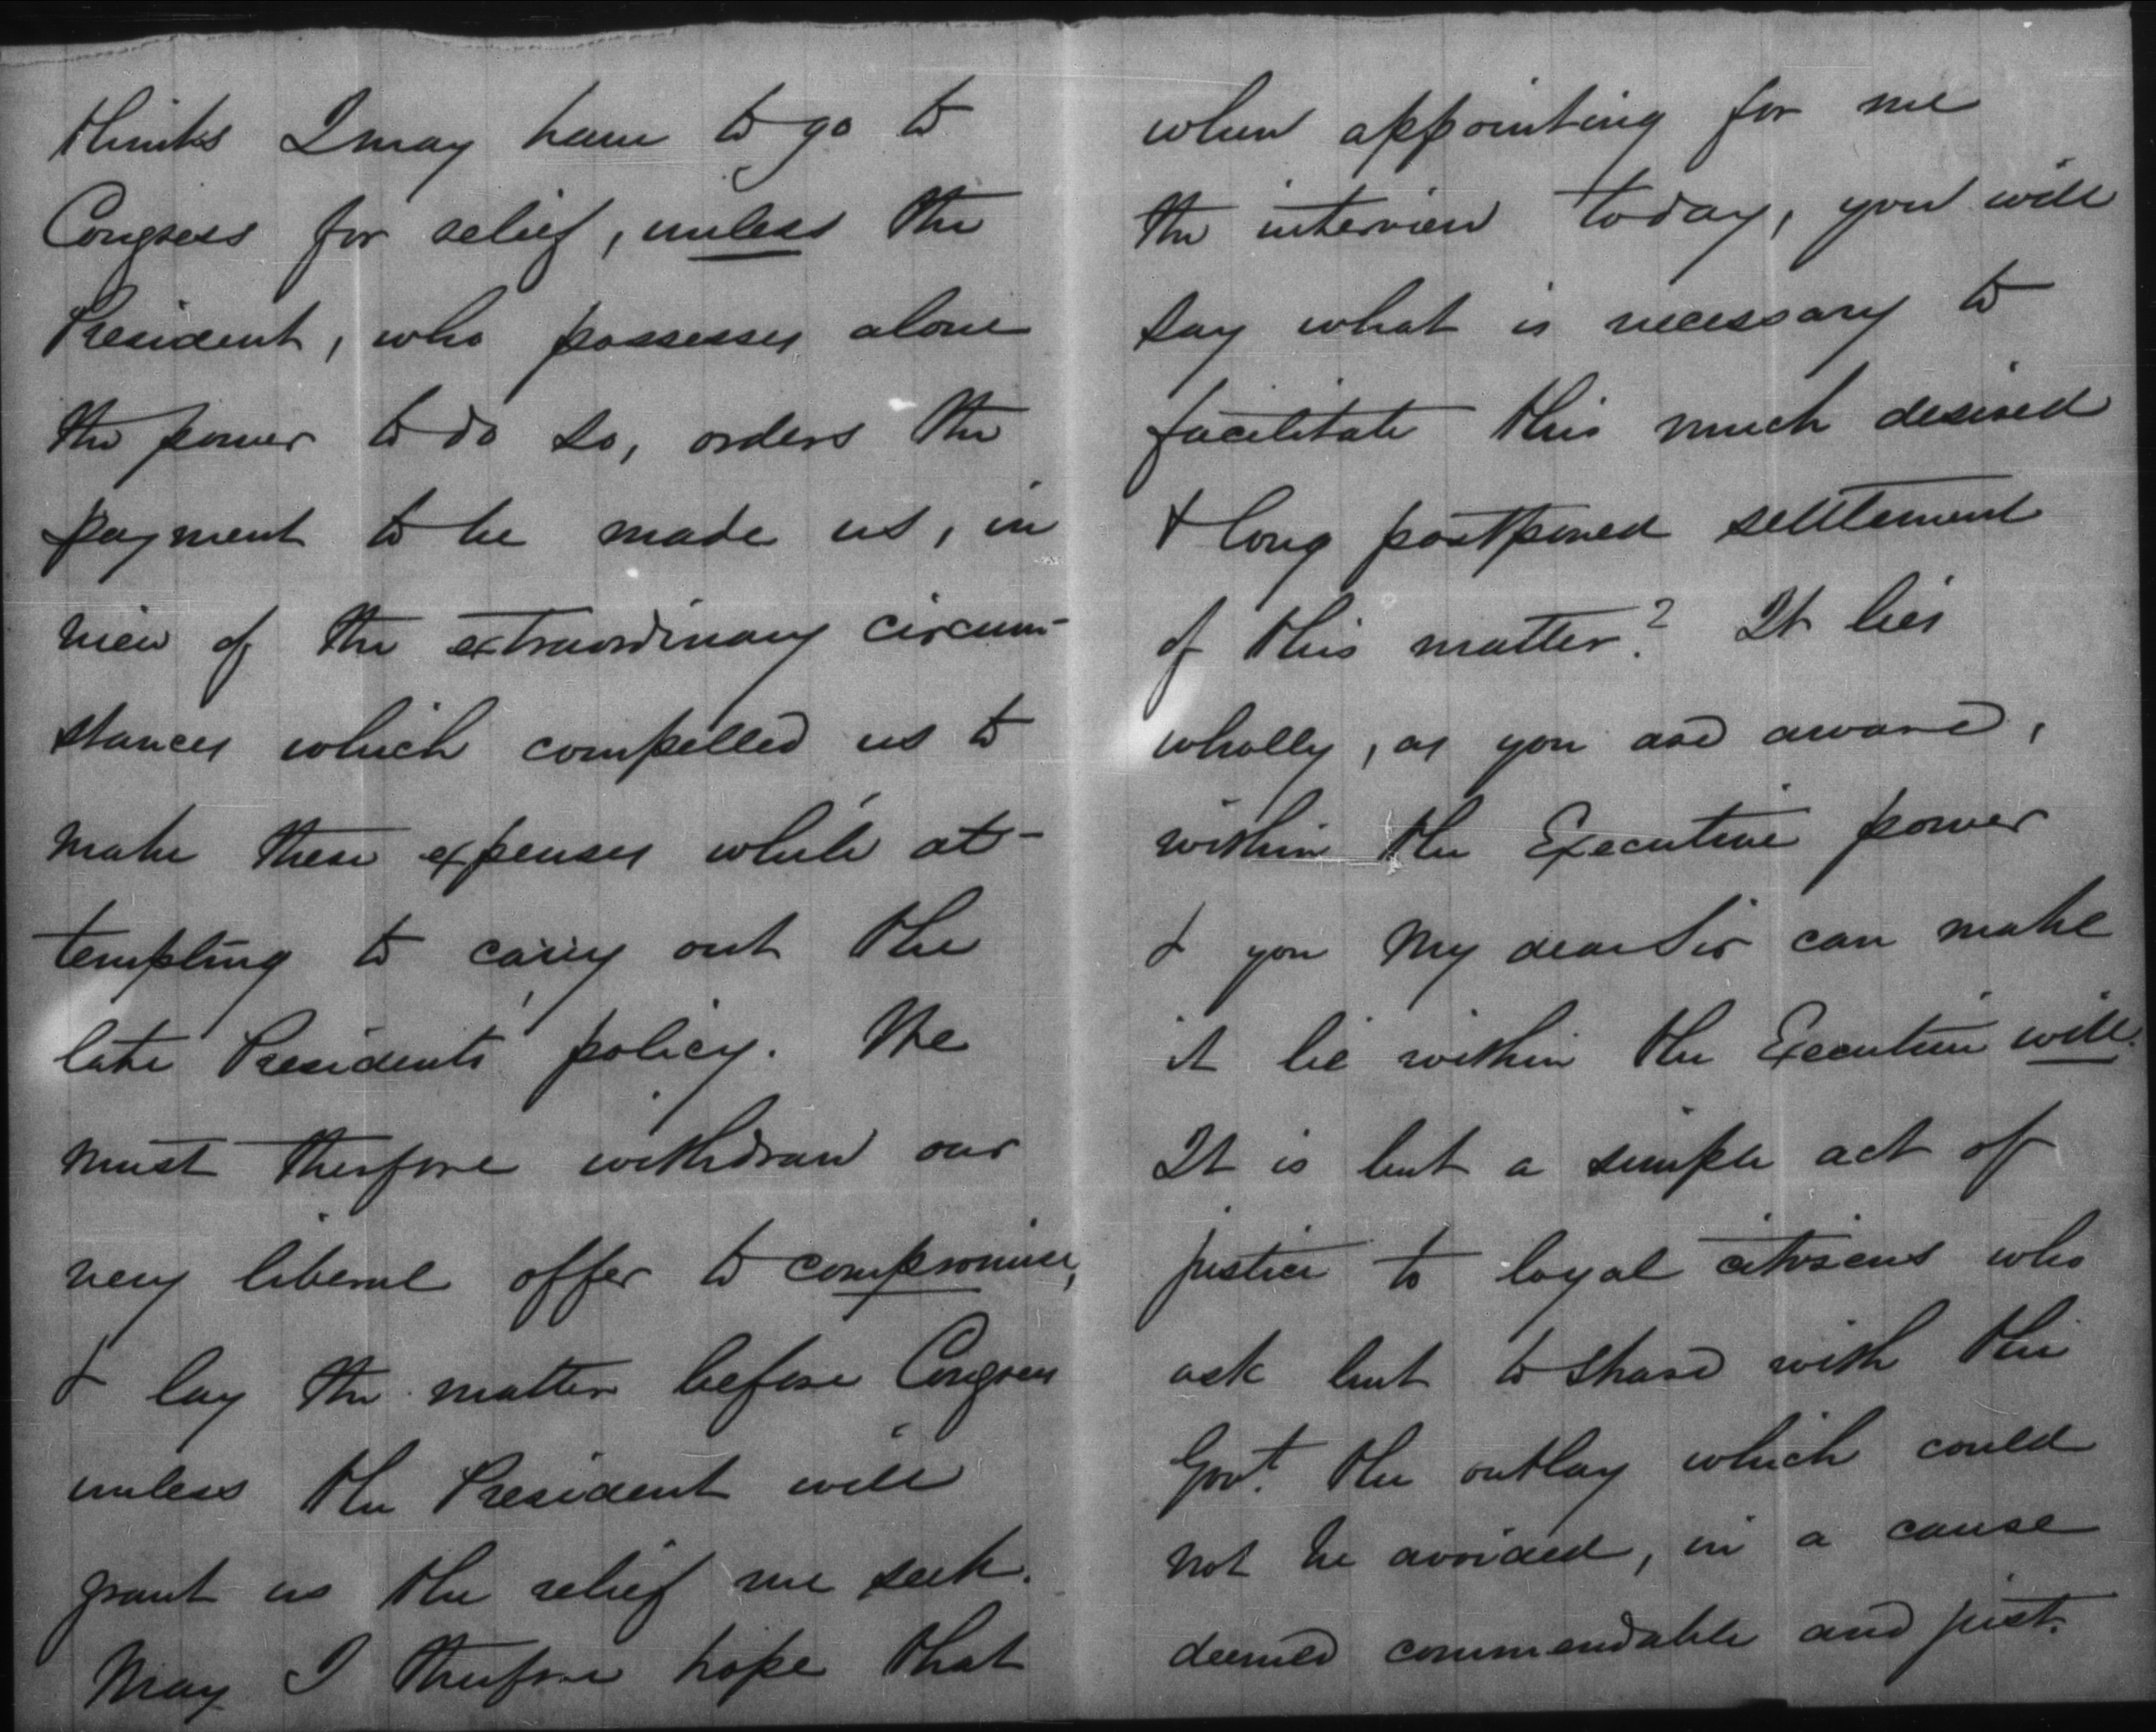 thinks I may have to go to
Congress for relief, unless the
President, who possesses alone
the power to do so, orders the
payment to be made us, in
view of the extraordinary circum-
stances which compelled us to
make these expenses while at-
tempting to carry out the
late Presidents policy. We
must therefore withdraw our
very liberal offer to compromise,
& lay the matter before Congress
unless the President will
grant us the relief we seek.
May I therefore hope that
when appointing for me
the interview today, you will
say what is necessary to
facilitate this much desired
& long postponed settlement
of this matter? It lies
wholly, as you are aware,
within the Executive power
& you my dear Sir can make
it lie within the Executive will.
It is but a simple act of
justice to loyal citizens who
ask but to share with the
Govt. the outlay which could
not be avoided, in a cause
deemed commendable and just.